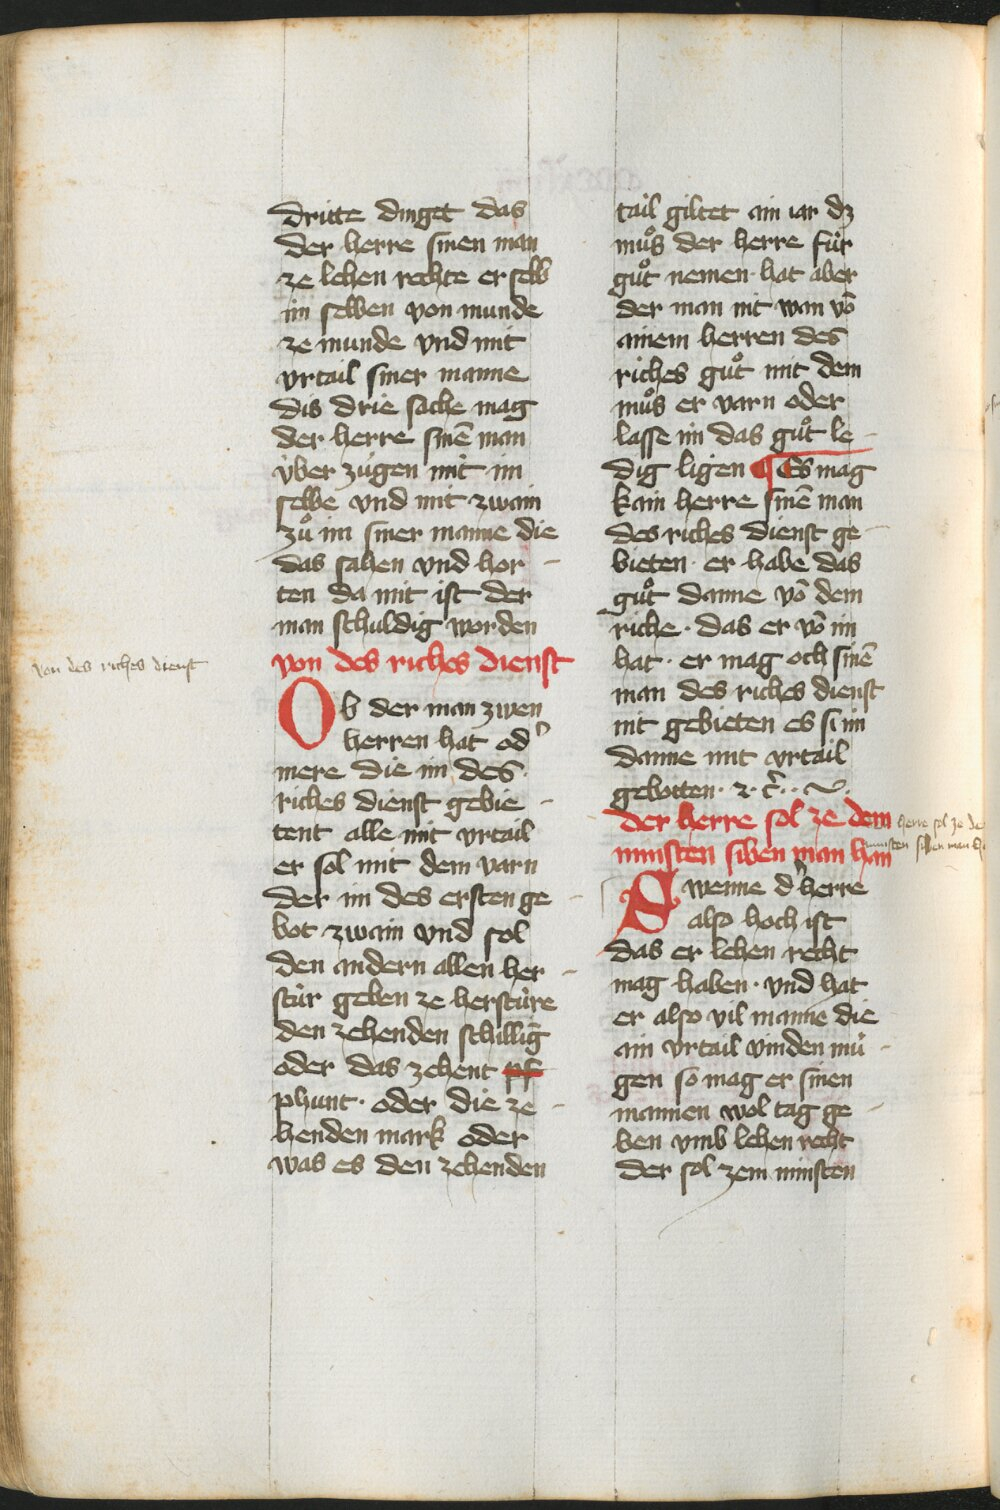 dritte dinget das
der herre sinen man
ze lehen rechte er selb
im selben von munde
ze munde vnd mit
vrtail siner manne
dis drie sache mag
der herre sinē man
vber zúgen mit im
selbe vnd mit zwain
zuͦ im siner manne die
das sahen vnd hor-
ten da mit ist der
man schuldig worden
von des riches dienst
von des riches dienst
Ob der man zwen
herren hat od'
mere die im des
riches dienst gebie-
tent alle mit vrtail
er sol mit dem varn
der im des ersten ge-
bot zwain vnd sol
den andern allen her-
stúr geben ze herstúre
den zehenden schilliḡ
oder das zehent pf
phunt· oder die ze-
henden mark oder
was es den zehenden
tail giltet ain iar dz
muͦs der herre fúr
guͦt nemen· hat aber
der man nit wan vō
ainem herren des
riches guͦt mit dem
muͦs er varn oder
lasse im das guͦt le-
dig ligen ¶ Es mag
kain herre sinē man
des riches dienst ge-
bieten· er habe das
guͦt danne vō dem
riche· das er vō im
hat· er mag och sinē
man des riches dienst
nit gebieten es si im
danne mit vrtail
gebotten· ꝛ· c̄·
der herre sol ze dem
minsten siben man han
herre sol ze de
minsten siben man h
Swenne d' herre
also hoch ist
das er lehen recht
mag haben· vnd hat
er also vil manne die
ain vrtail vinden mú-
gen so mag er sinen
mannen wol tag ge-
ben vmb lehen recht
der sol zem minsten